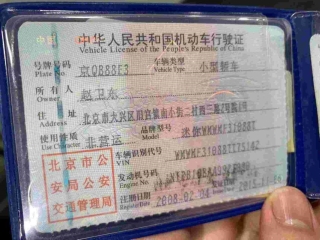 中华人民共和国机动车行驶证
Vehicle License of the People's Republic of China
号牌号码 京QB88E3 车辆类型 小型轿车
Plate No. Vehicle Type
所有人 赵卫东
Owner
住址 北京市大兴区旧宫镇南小街二村西三
Address
使用性质 非营运 品牌型号 迷你
Use Character Model
车辆识别代号
VIN
发动机号码
Engine No.
注册日期 2008-02-04
Register Date
北京市公
安局公安
交通管理局